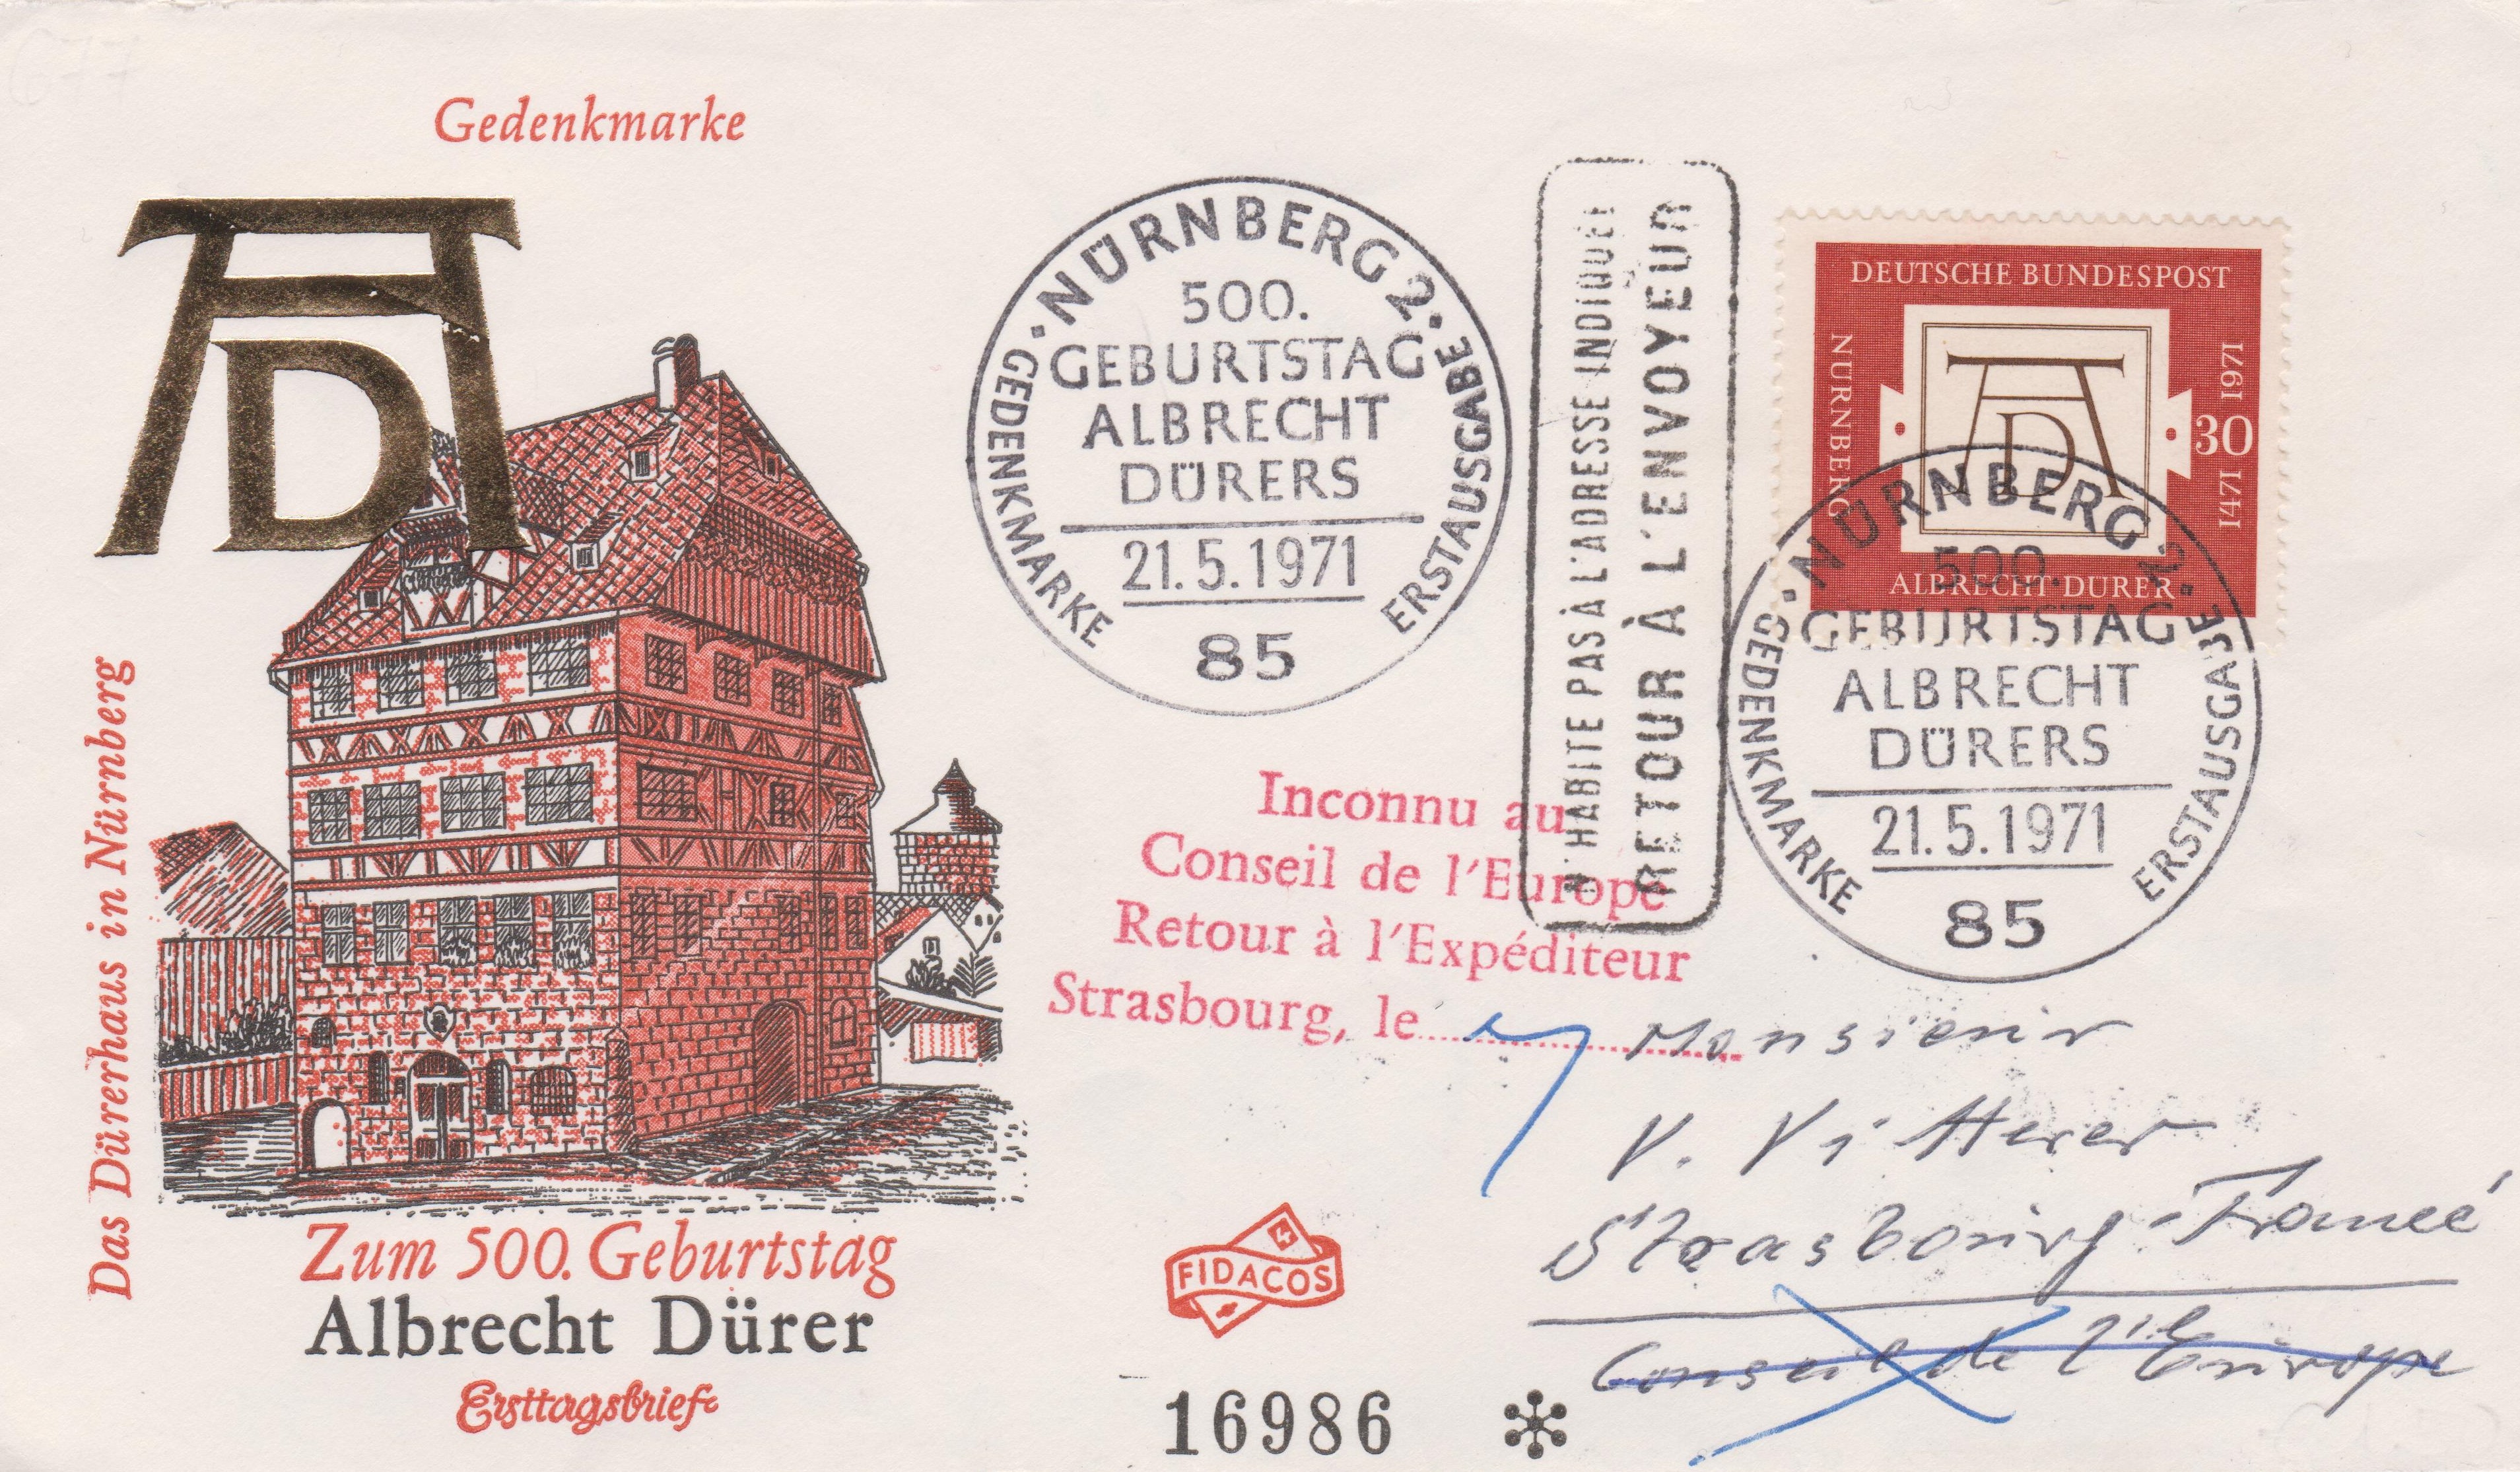 677
Gedenkmarke
AD
Das Dürerhaus in Nürnberg
Zum 500. Geburtstag
Albrecht Dürer
Ersttagsbrief
• NÜRNBERG 2 •
500.
GEBURTSTAG
ALBRECHT
DÜRERS
21.5.1971
85
GEDENKMARKE
ERSTAUSGABE
N'HABITE PAS À L'ADRESSE INDIQUÉE
RETOUR À L'ENVOYEUR
DEUTSCHE BUNDESPOST
NÜRNBERG
AD
30
1471 1971
ALBRECHT DÜRER
• NÜRNBERG 2 •
500.
GEBURTSTAG
ALBRECHT
DÜRERS
21.5.1971
85
GEDENKMARKE
ERSTAUSGABE
Inconnu au
Conseil de l'Europe
Retour à l'Expéditeur
Strasbourg, le
Monsieur
V. Vitterer
Strasbourg - France
Conseil de l'Europe
FIDACOS
16986